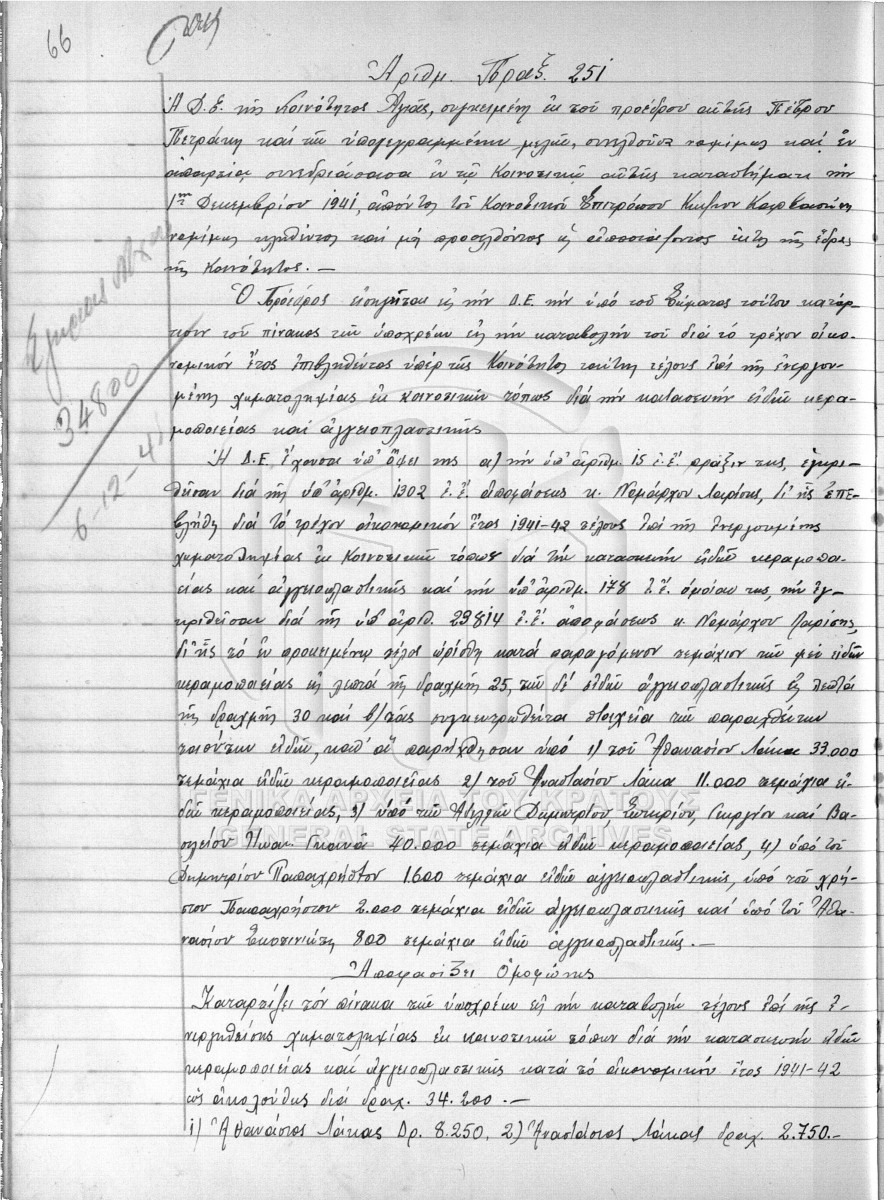 66
Ἀριθμ. Πράξ. 251
Ἡ Δ.Ε. τῆς Κοινότητος Ἁγιᾶς, συγκειμένη ἐκ τοῦ προέδρου αὐτῆς Πέτρου
Πετράκη καὶ τῶν ὑπογεγραμμένων μελῶν, συνελθοῦσα νομίμως καὶ ἐν
ἀπαρτίᾳ συνεδριάσασα ἐν τῷ Κοινοτικῷ αὐτῆς καταστήματι τὴν
1ην Δεκεμβρίου 1941, ἀπόντος τοῦ Κοινοτικοῦ Ἐπιτρόπου
νομίμως κληθέντος καὶ μὴ προσελθόντος ὡς ἐκτὸς τῆς ἕδρας
τῆς Κοινότητος. —
Ὁ Πρόεδρος εἰσηγεῖται εἰς τὴν Δ.Ε τὴν ὑπὸ τοῦ Σώματος τούτου κατάρ-
τισιν τοῦ πίνακος τῶν ὑποχρέων εἰς τὴν καταβολὴν τοῦ διὰ τὸ τρέχον οἰκο-
νομικὸν ἔτος ἐπιβληθέντος ὑπὲρ τῆς Κοινότητος ταύτης τέλους ἐπὶ τῆς ἐνεργου-
μένης χωματοληψίας ἐκ κοινοτικῶν τόπων διὰ τὴν κατασκευὴν εἰδῶν κερα-
μοποιείας καὶ ἀγγειοπλαστικῆς
Ἡ Δ.Ε. ἔχουσα ὑπ' ὄψει της α) τὴν ὑπ' ἀριθμ. 15 ἐ.ἔ. πρᾶξιν της, ἐγκρι-
θεῖσαν διὰ τῆς ὑπ' ἀριθμ. 1302 ἐ.ἔ. ἀποφάσεως κ. Νομάρχου Λαρίσης, δι' ἧς ἐπε-
βλήθη διὰ τὸ τρέχον οἰκονομικὸν ἔτος 1941-42 τέλους ἐπὶ τῆς ἐνεργουμένης
χωματοληψίας ἐκ Κοινοτικῶν τόπων διὰ τὴν κατασκευὴν εἰδῶν κεραμοποι-
είας καὶ ἀγγειοπλαστικῆς καὶ τὴν ὑπ' ἀριθμ. 178 ἐ.ἔ. ὁμοίαν της, τὴν ἐγ-
κριθεῖσαν διὰ τῆς ὑπ' ἀριθ. 29814 ἐ.ἔ. ἀποφάσεως κ. Νομάρχου Λαρίσης,
δι' ἧς τὸ ἐν προκειμένῳ τέλος ὡρίσθη κατὰ παραγόμενον τεμάχιον τῶν μὲν εἰδῶν
κεραμοποιείας εἰς λεπτὰ τῆς δραχμῆς 25, τῶν δὲ εἰδῶν ἀγγειοπλαστικῆς εἰς λεπτὰ
τῆς δραχμῆς 30 καὶ β) τὰς συγκεντρωθέντα στοιχεῖα τῶν παραχθέντων
τοιούτων εἰδῶν, καθ' ἃ παρήχθησαν ὑπὸ 1) τοῦ Ἀθανασίου Λάκα 33.000
τεμάχια εἰδῶν κεραμοποιείας 2) τοῦ Ἀναστασίου Λάκα 11.000 τεμάχια εἰ-
δῶν κεραμοποιείας, 3) ὑπὸ τῶν Ἀδελφῶν Δημητρίου, Σωτηρίου, Γεωργίου καὶ Βα-
σιλείου 40.000 τεμάχια εἰδῶν κεραμοποιείας, 4) ὑπὸ τοῦ
Δημητρίου Παπαχρήστου 1.600 τεμάχια εἰδῶν ἀγγειοπλαστικῆς, ὑπὸ τοῦ Χρή-
στου Παπαχρήστου 2.000 τεμάχια εἰδῶν ἀγγειοπλαστικῆς καὶ ὑπὸ τοῦ Ἀθα-
νασίου 800 τεμάχια εἰδῶν ἀγγειοπλαστικῆς. —
Ἀποφασίζει Ὁμοφώνως
Καταρτίζει τὸν πίνακα τῶν ὑποχρέων εἰς τὴν καταβολὴν τέλους ἐπὶ τῆς ἐ-
νεργηθείσης χωματοληψίας ἐκ κοινοτικῶν τόπων διὰ τὴν κατασκευὴν εἰδῶν
κεραμοποιείας καὶ ἀγγειοπλαστικῆς κατὰ τὸ οἰκονομικὸν ἔτος 1941-42
ὡς ἀκολούθως διὰ δραχ. 34.200. —
1) Ἀθανάσιος Λάκας Δρ. 8.250, 2) Ἀναστάσιος Λάκας δραχ. 2.750.—
34800
6-12-41
ΓΕΝΙΚΑ ΑΡΧΕΙΑ ΤΟΥ ΚΡΑΤΟΥΣ
GENERAL STATE ARCHIVES